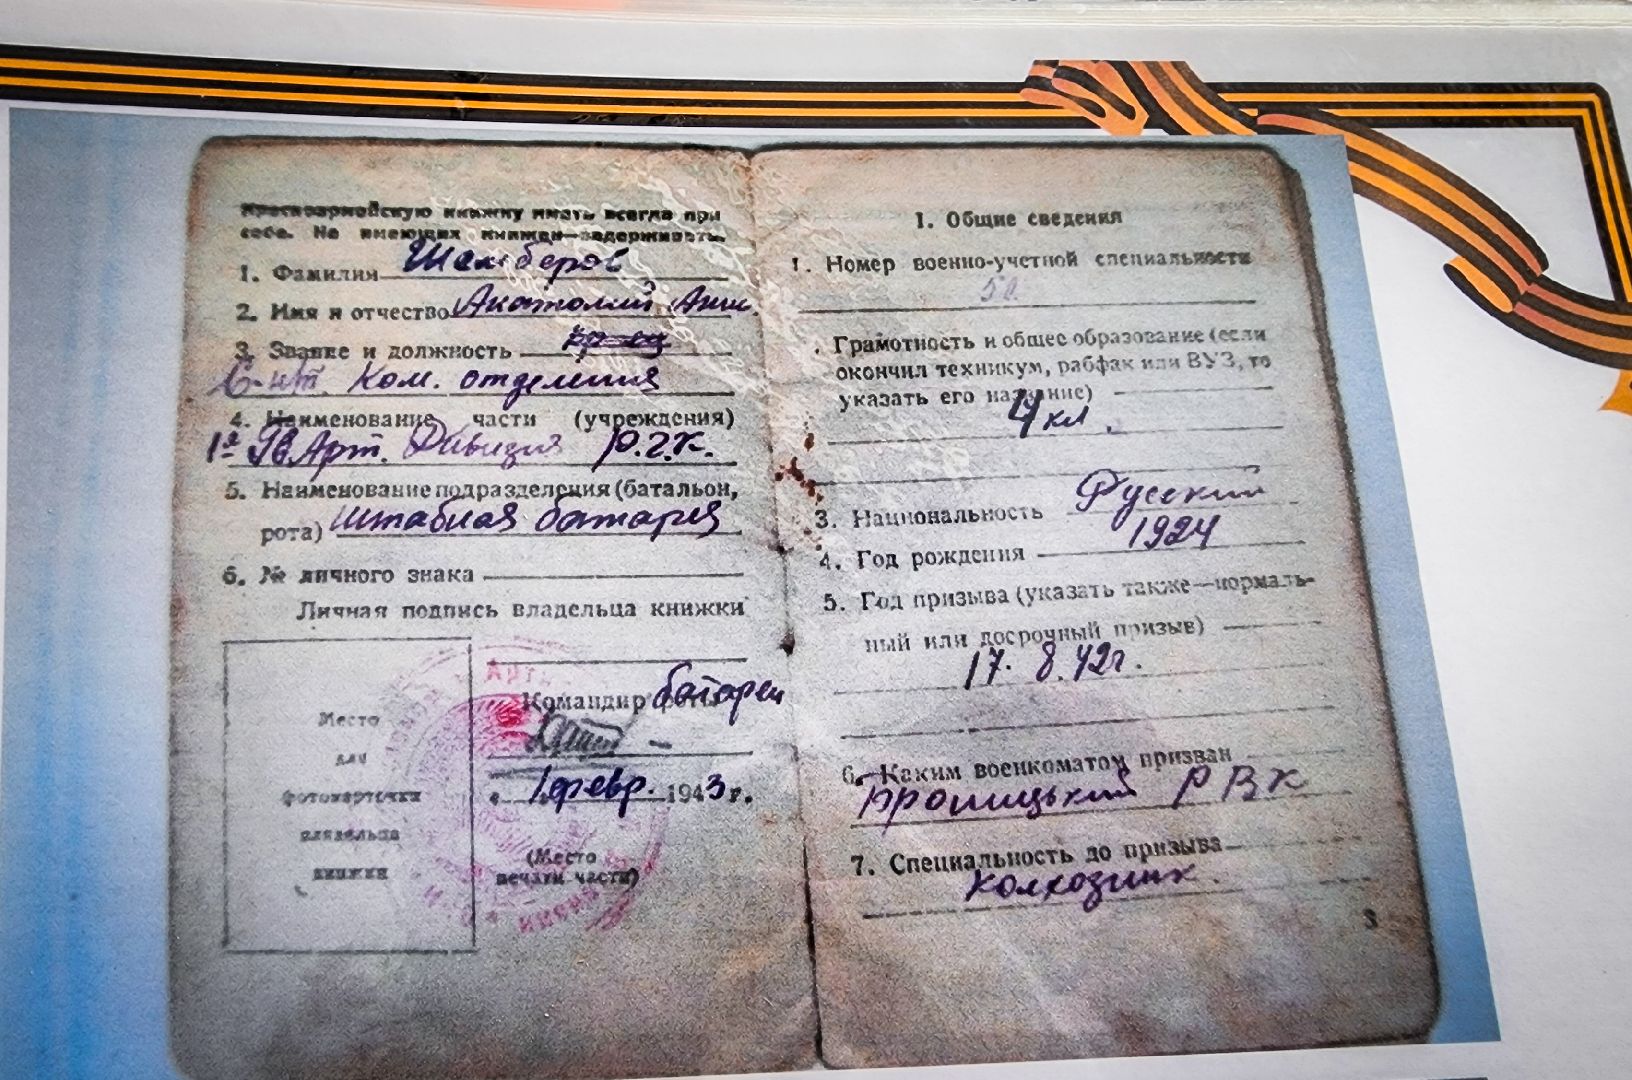 Красноармейскую книжку иметь всегда при
себе. Не имеющих книжки—задерживать.
1. Фамилия
2. Имя и отчество Анатолий
3. Звание и должность кр-ец
С-нт. Ком. отделения
4. Наименование части (учреждения)
1я Гв. Арт. Дивизия Р.Г.К.
5. Наименование подразделения (батальон,
рота) Штабная батарея
6. № личного знака
Личная подпись владельца книжки
Место
для
фотокарточки
владельца
книжки
Командир роты батареи
1 февр. 1943 г.
(Место
печати части)
I. Общие сведения
1. Номер военно-учетной специальности
50
Грамотность и общее образование (если
окончил техникум, рабфак или ВУЗ, то
указать его название)
4 кл.
3. Национальность Русский
4. Год рождения 1924
5. Год призыва (указать также—нормаль-
ный или досрочный призыв)
17. 8. 42г.
6. Каким военкоматом призван
РВК
7. Специальность до призыва
колхозник.
3